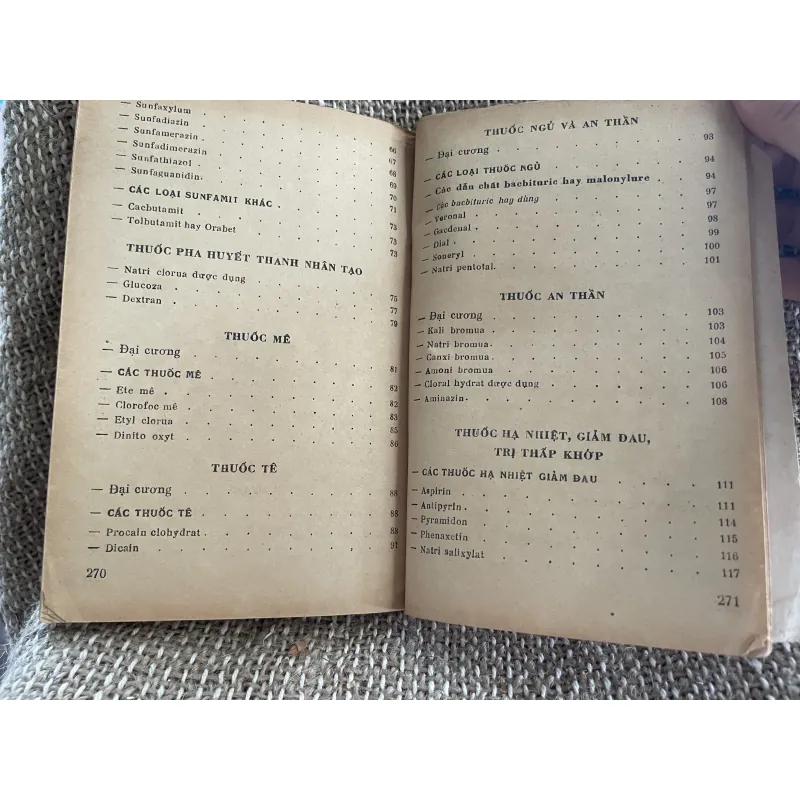 — Sunfaxylum . . . . . 66
— Sunfadiazin . . . . . 67
— Sunfamerazin . . . . . 68
— Sunfadimerazin . . . . . 69
— Sunfathiazol . . . . . 70
— Sunfaguanidin . . . . . 71
— CÁC LOẠI SUNFAMIT KHÁC . . . . . 73
— Cacbutamit . . . . . 73
— Tolbutamit hay Orabet . . . . . 73
THUỐC PHA HUYẾT THANH NHÂN TẠO
— Natri clorua dược dụng . . . . . 75
— Glucoza . . . . . 77
— Dextran . . . . . 79
THUỐC MÊ
— Đại cương . . . . . 81
— CÁC THUỐC MÊ . . . . . 82
— Ete mê . . . . . 82
— Clorofoc mê . . . . . 83
— Etyl clorua . . . . . 85
— Dinito oxyt . . . . . 86
THUỐC TÊ
— Đại cương . . . . . 88
— CÁC THUỐC TÊ . . . . . 88
— Procain clohydrat . . . . . 88
— Dicain . . . . . 91
270
THUỐC NGỦ VÀ AN THẦN
— Đại cương . . . . . 93
— CÁC LOẠI THUỐC NGỦ . . . . . 94
— Các dẫn chất bacbituric hay malonylure . . . . . 94
— Các bacbituric hay dùng . . . . . 97
— Veronal . . . . . 97
— Gacdenal . . . . . 98
— Dial . . . . . 99
— Soneryl . . . . . 100
— Natri pentotal . . . . . 101
THUỐC AN THẦN
— Đại cương . . . . . 103
— Kali bromua . . . . . 103
— Natri bromua . . . . . 104
— Canxi bromua . . . . . 105
— Amoni bromua . . . . . 106
— Cloral hydrat dược dụng . . . . . 106
— Aminazin . . . . . 108
THUỐC HẠ NHIỆT, GIẢM ĐAU,
TRỊ THẤP KHỚP
— CÁC THUỐC HẠ NHIỆT GIẢM ĐAU . . . . . 111
— Aspirin . . . . . 111
— Antipyrin . . . . . 114
— Pyramidon . . . . . 115
— Phenaxetin . . . . . 116
— Natri salixylat . . . . . 117
271